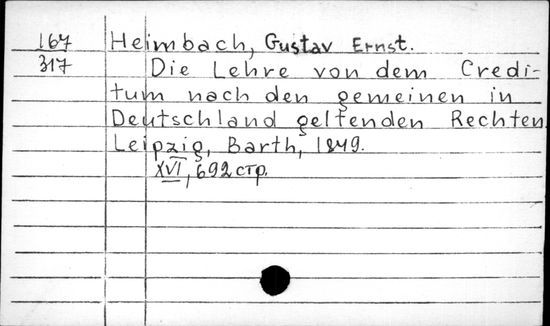 167 Heimbach, Gustav Ernst.
317 Die Lehre von dem Credi-
tum nach den gemeinen in
Deutschland geltenden Rechten
Leipzig, Barth, 1849.
XVI, 692 стр.